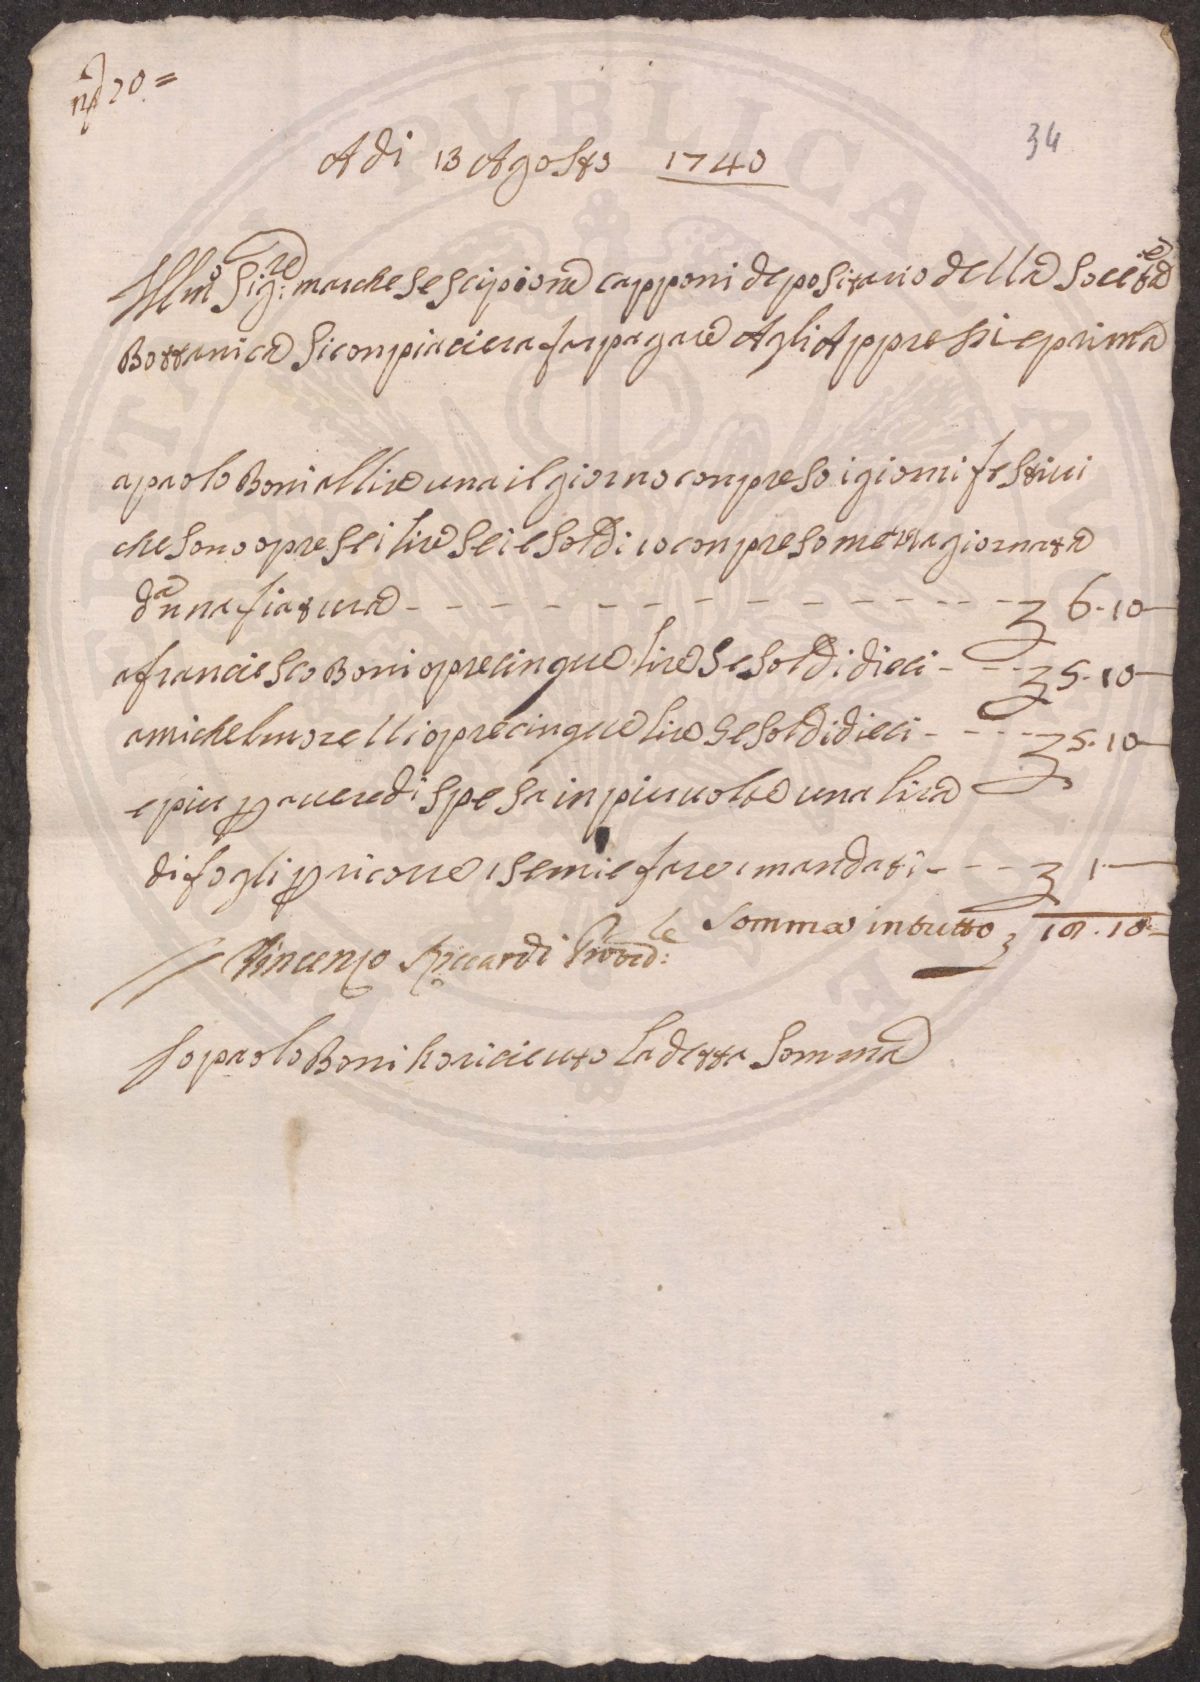 n.º 20 =
34
Adi 13 Agosto 1740
Ill.mo Sig.re marchese scipione capponi depositario della socetà
Bottanica si conpiaciera far pagare Agli Appressi e prima
a paolo Boni a llire una il giorno conpreso i giorni festiui
che sono opre sei lire sei e soldi 10 conpreso meza giornata
da nafiatura - - - £ 6.10
a franciesco Boni opre cinque lire 5 e soldi dieci - - £ 5.10
a michel morelli opre cinque lire 5 e soldi dieci - - £ 5.10
e piu p auere di spesa in piu uolte una lira
di fogli p ricorre i semi e fare i mandati - - - £ 1.
Somma in tutto £ 18.10
Vincenzo Riccardi Proved.le
Io paolo Boni ho riceuto la detta somma